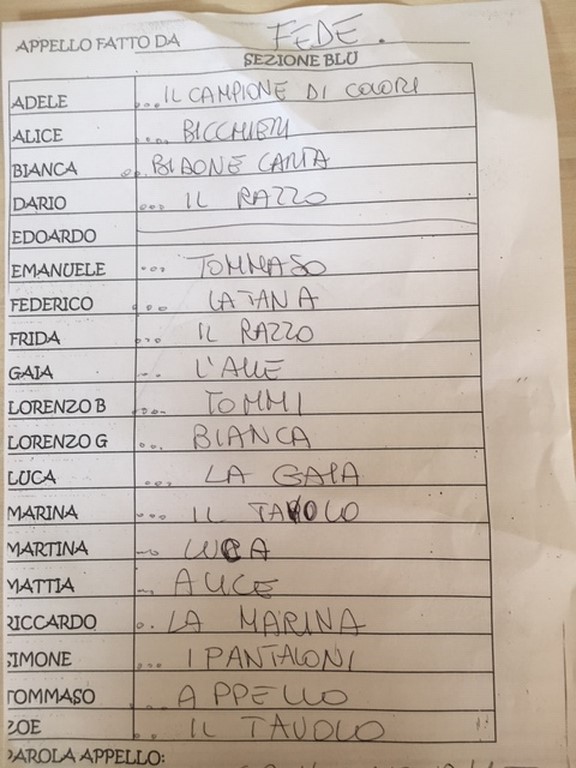 APPELLO FATTO DA FEDE.
SEZIONE BLU
ADELE ...IL CAMPIONE DI COLORI
ALICE .... BICCHIERI
BIANCA ... BIDONE CARTA
DARIO ... IL RAZZO
EDOARDO
EMANUELE ... TOMMASO
FEDERICO ... LA TANA
FRIDA ... IL RAZZO
GAIA ... L'ALLE
LORENZO B .... TOMMI
LORENZO G ... BIANCA
LUCA ... LA GAIA
MARINA ... IL TAVOLO
MARTINA ... LUCA
MATTIA ... ALICE
RICCARDO .. LA MARINA
SIMONE ... I PANTALONI
TOMMASO ... APPELLO
ZOE .. IL TAVOLO
PAROLA APPELLO: